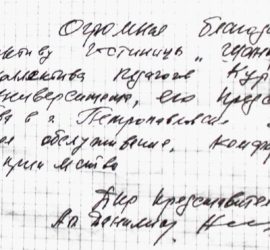 Огромная благод
ктиву гостиницы „
коллектива педагог Кур
университета, его предс
ва в г. Петропавловск
ое обслуживание, комф
приимство
Дир представител